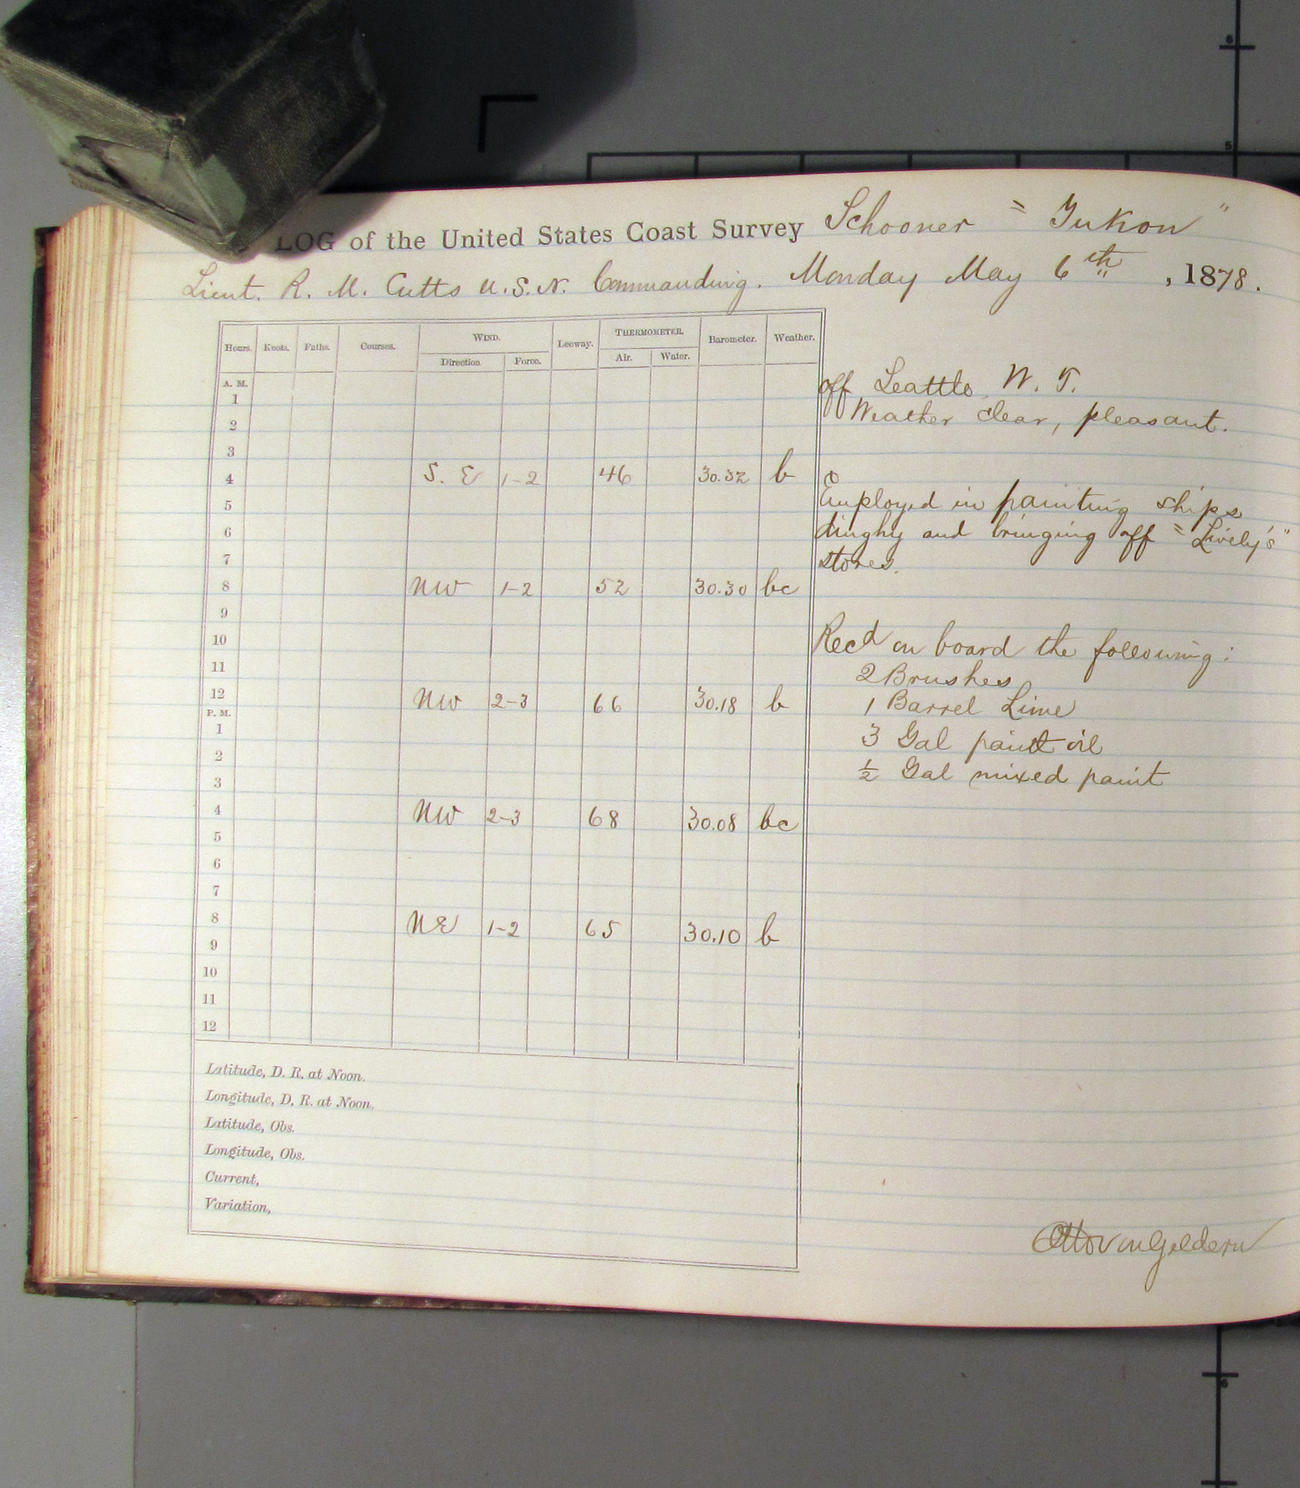 LOG of the United States Coast Survey Schooner "Yukon"
Lieut. R. M. Cutts U.S.N. Commanding. Monday May 6th, 1878.
Hours. Knots. Faths. Courses. WIND. Leeway. THERMOMETER. Barometer. Weather.
Direction. Force. Air. Water.
A. M.
1
2
3
4 S. E 1-2 46 30.32 b
5
6
7
8 NW 1-2 52 30.30 bc
9
10
11
12 NW 2-3 66 30.18 b
P. M.
1
2
3
4 NW 2-3 68 30.08 bc
5
6
7
8 NE 1-2 65 30.10 b
9
10
11
12
Latitude, D. R. at Noon.
Longitude, D. R. at Noon.
Latitude, Obs.
Longitude, Obs.
Current,
Variation,
off Seattle, W. T.
Weather clear, pleasant.
Employed in painting ships
dinghy and bringing off "Lively's"
stores.
Recd on board the following:
2 Brushes
1 Barrel Lime
3 Gal paint oil
½ Gal mixed paint
Otto von Geldern
6
5
6